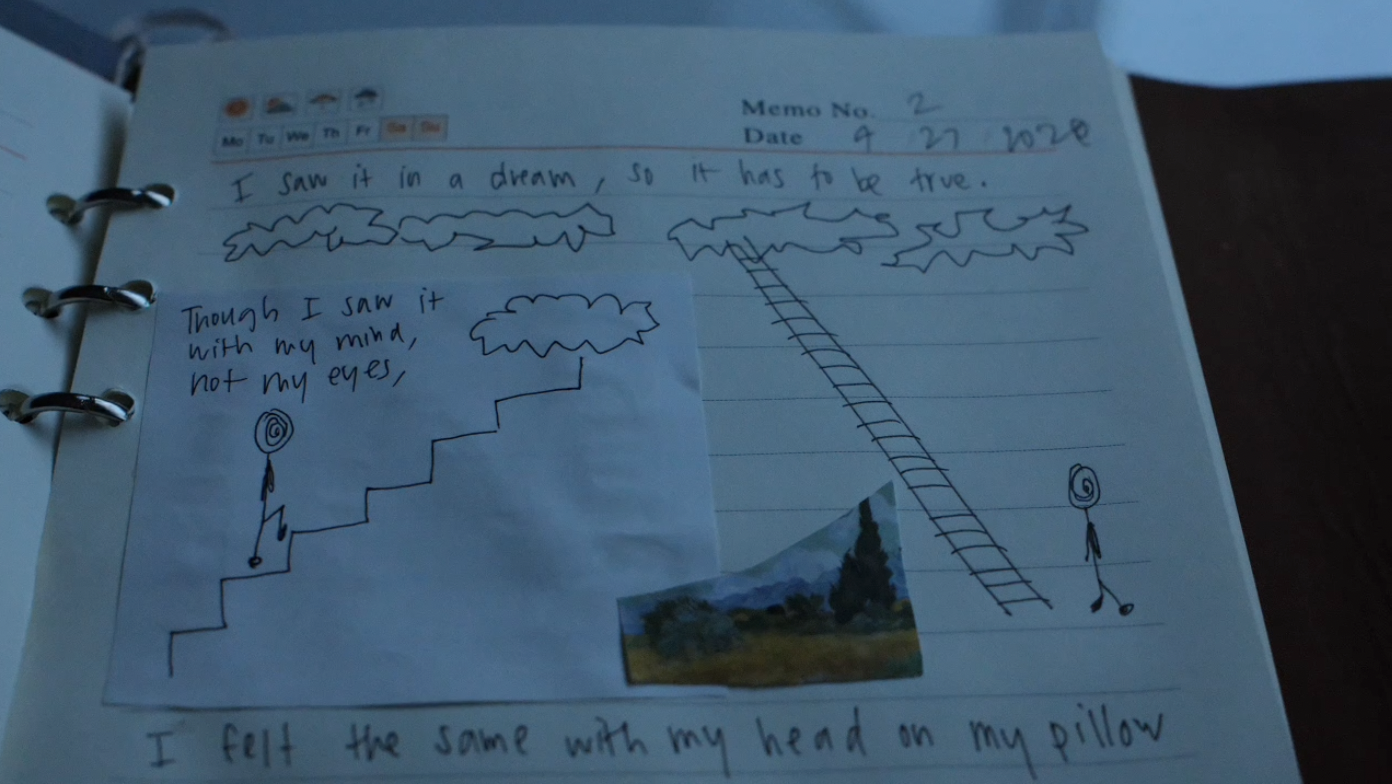 Memo No. 2
Mo Tu We Th Fr Sa Su
Date 9 27
I saw it in a dream, so it has to be true.
Though I saw it
with my mind,
not my eyes,
I felt the same with my head on my pillow